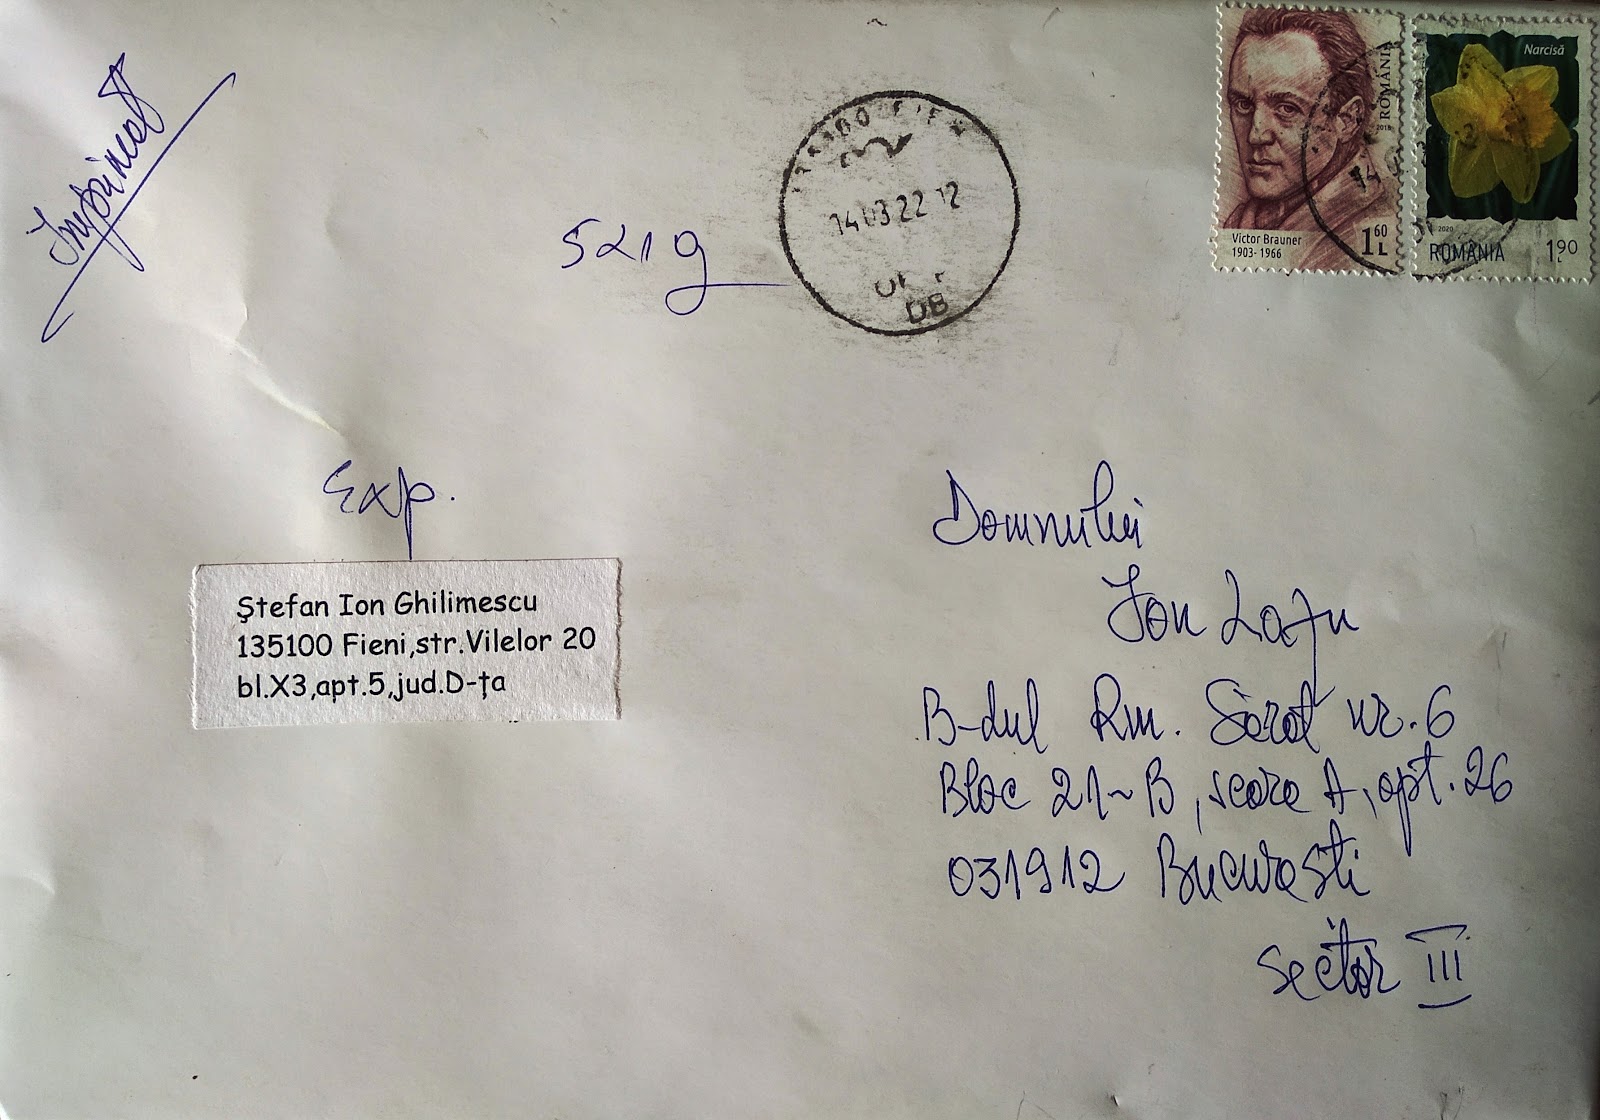 Imprimat
521 g
14 03 22 12
DB
ROMÂNIA
2018
Victor Brauner
1903-1966
1 60 L
Narcisă
2020
ROMÂNIA 1.90
Exp.
Ștefan Ion Ghilimescu
135100 Fieni,str.Vilelor 20
bl.X3,apt.5,jud.D-ța
Domnului
Ion Lazu
B-dul Rm. Sărat nr. 6
Bloc 21-B, scara A, apt. 26
031912 București
Sector III